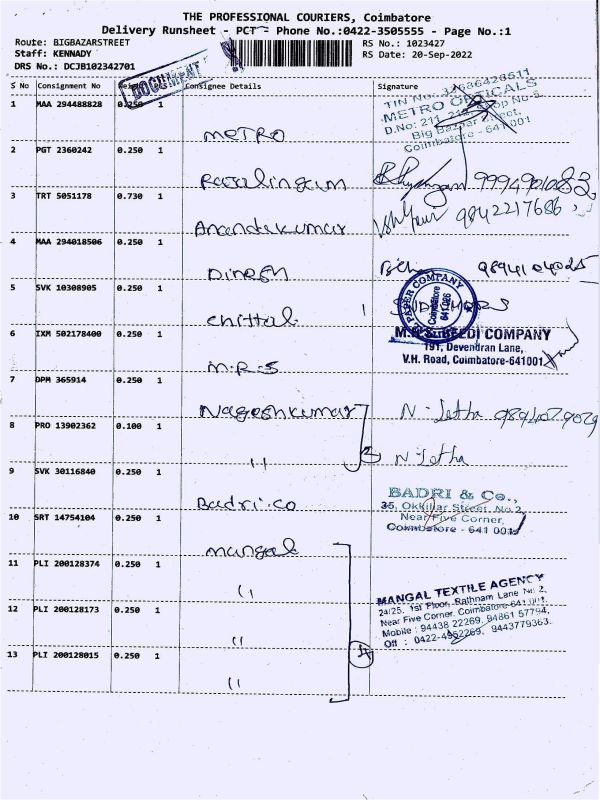 THE PROFESSIONAL COURIERS, Coimbatore
Delivery Runsheet - PCT - Phone No.:0422-3505555 - Page No.:1
Route: BIGBAZARSTREET
RS No.: 1023427
Staff: KENNADY
RS Date: 20-Sep-2022
DRS No.: DCJB102342701
DOCUMENT
S No Consignment No Consignee Details Signature
1 MAA 294488828 0.250 1 METRO
TIN No:
METRO OPTICALS
D.No: 211,
Big Bazaar Street,
Coimbatore - 641 001
2 PGT 2360242 0.250 1 Rajalingam 9994901083
3 TRT 5051178 0.730 1 Anandakumar 9842217686
4 MAA 294018506 0.250 1 Dinesh 9894104025
5 SVK 10308905 0.250 1 chittal
PAPER COMPANY
Coimbatore
6 IXM 502178400 0.250 1 M.R.S
BEEDI COMPANY
191, Devendran Lane,
V.H. Road, Coimbatore-641001
7 DPM 365914 0.250 1 Nageshkumar N. Jetha
8 PRO 13902362 0.100 1 11 2 N. Jetha
9 SVK 30116840 0.250 1 Badri.co
BADRI & Co.,
35, Okkiliar Street, No.2,
Near Five Corner,
Coimbatore - 641 001
10 SRT 14754104 0.250 1 mangal
11 PLI 200128374 0.250 1 11
12 PLI 200128173 0.250 1 11
13 PLI 200128015 0.250 1 11
4
MANGAL TEXTILE AGENCY
24/25, 1st Floor, Rathnam Lane No: 2,
Near Five Corner, Coimbatore-641 001.
Mobile : 94438 22269, 94861 57794,
Off : 0422-4952269, 9443779363.